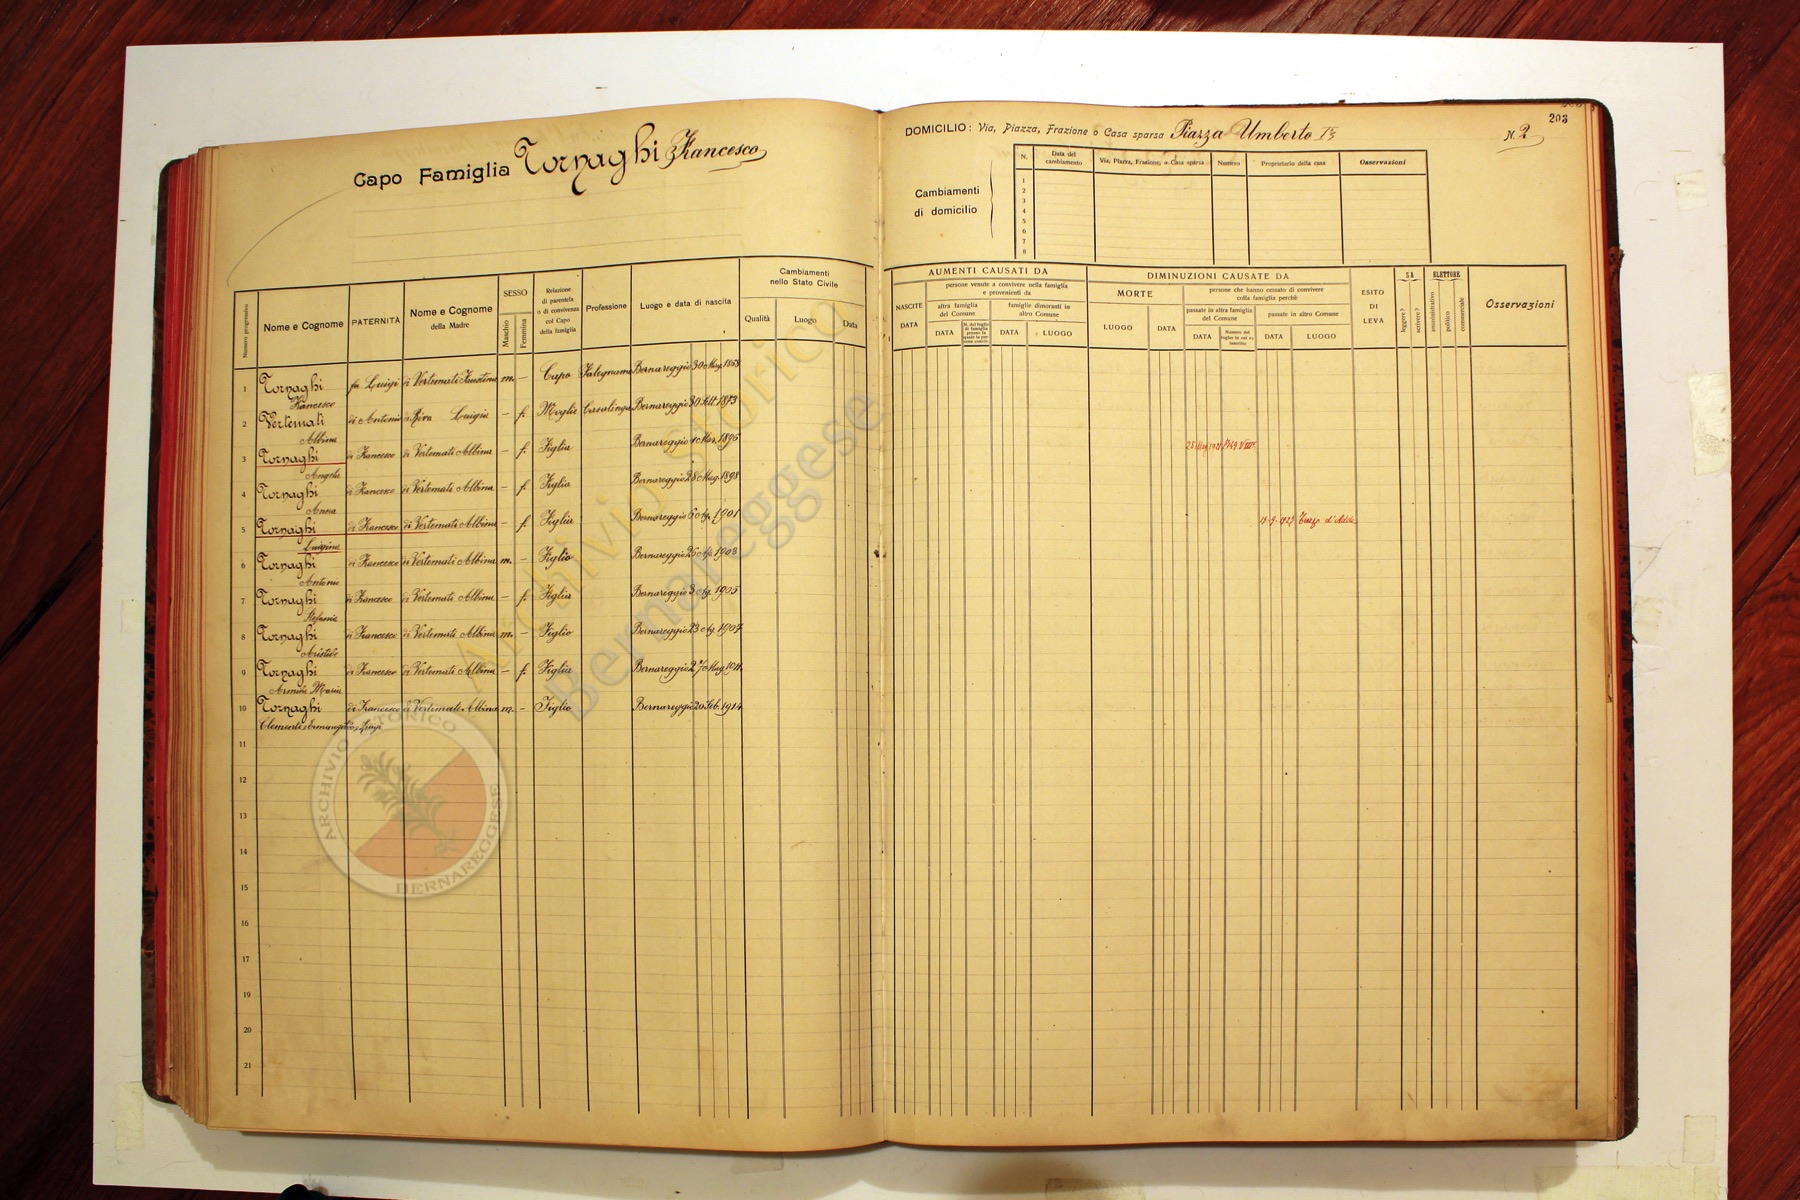 203
Capo Famiglia Tornaghi Francesco
DOMICILIO: Via, Piazza, Frazione o Casa sparsa Piazza Umberto I° N. 2
Cambiamenti
di domicilio
N. Data del cambiamento Via, Piazza, Frazione, o Casa sparsa Numero Proprietario della casa Osservazioni
1
2
3
4
5
6
7
8
Numero progressivo
Nome e Cognome
PATERNITÀ
Nome e Cognome
della Madre
SESSO
Maschio
Femmina
Relazione
di parentela
o di convivenza
col Capo
della famiglia
Professione
Luogo e data di nascita
Cambiamenti
nello Stato Civile
Qualità Luogo Data
AUMENTI CAUSATI DA
NASCITE
DATA
persone venute a convivere nella famiglia
e provenienti da
altra famiglia
del Comune
DATA
famiglie dimoranti in
altro Comune
DATA LUOGO
DIMINUZIONI CAUSATE DA
MORTE
LUOGO DATA
persone che hanno cessato di convivere
colla famiglia perchè
passate in altra famiglia
del Comune
DATA
passate in altro Comune
DATA LUOGO
ESITO
DI
LEVA
SA
leggere?
scrivere?
ELETTORE
amministrativo
politico
commerciale
Osservazioni
1 Tornaghi fu Luigi di Vertemati Faustina m. - Capo Falegname Bernareggio 30 Mag. 1868
Francesco
2 Vertemati di Antonio di Riva Luigia - f. Moglie Casalinga Bernareggio 30 Sett. 1873
Albina
3 Tornaghi di Francesco di Vertemati Albina - f. Figlia Bernareggio 10 Mar. 1896
Angela
4 Tornaghi di Francesco di Vertemati Albina - f. Figlia Bernareggio 28 Mag. 1898
Anna
5 Tornaghi di Francesco di Vertemati Albina - f. Figlia Bernareggio 6 Ag. 1901 Trezzo d'Adda
Luigina
6 Tornaghi di Francesco di Vertemati Albina m. - Figlio Bernareggio 1903
Antonio
7 Tornaghi di Francesco di Vertemati Albina - f. Figlia Bernareggio 3 Ag. 1905
Stefania
8 Tornaghi di Francesco di Vertemati Albina m. - Figlio Bernareggio 23 Ag. 1907
Aristide
9 Tornaghi di Francesco di Vertemati Albina - f. Figlia Bernareggio 27 Mag. 1911
Armida Maria
10 Tornaghi di Francesco di Vertemati Albina m. - Figlio Bernareggio 20 Feb. 1914
Clemente Ermenegildo Luigi
11
12
13
14
15
16
17
19
20
21
Archivio storico
Bernareggese
ARCHIVIO STORICO
BERNAREGGESE